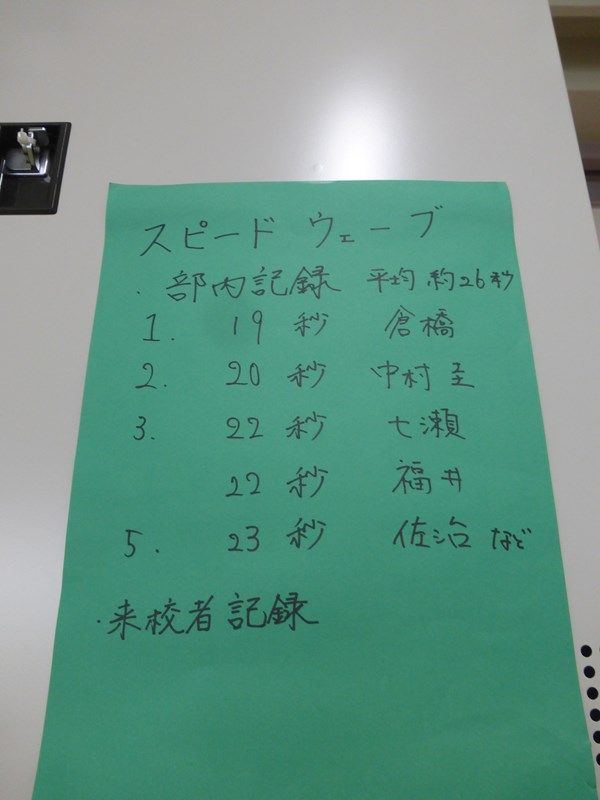 スピード ウェーブ
・部内記録 平均 約26秒
1. 19 秒 倉橋
2. 20 秒 中村圭
3. 22 秒 七瀬
22 秒 福井
5. 23 秒 佐治 など
・来校者記録